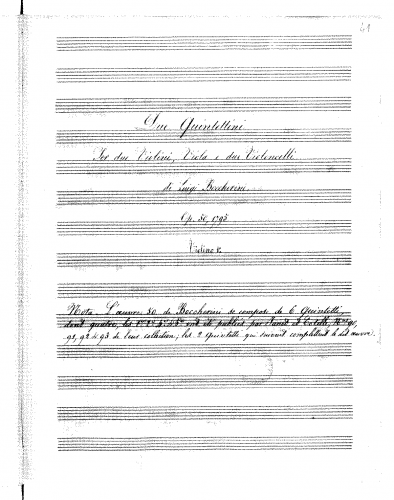 41
Due Quintettini
Per due Violini, Viola e due Violoncelli
di Luigi Boccherini
Op. 50, 1795
Violino 1º
Nota. L'œuvre 50 de Boccherini se compose de 6 Quintetti,
dont quatre, les ont été publiés par Janet et Cotelle, Nos 
91, 92 & 93 de leur collection; les 2 quintetti qui suivent complètent le dit œuvre.